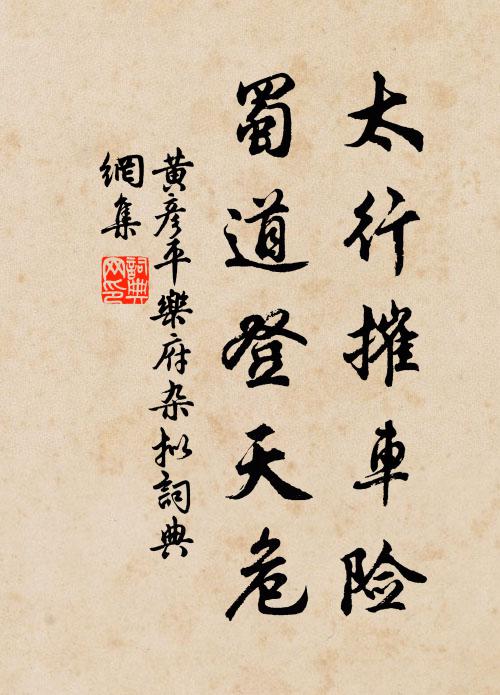 太行摧车险
蜀道登天危
黄彦平樂府杂拟詞典
網集
詞典
网印